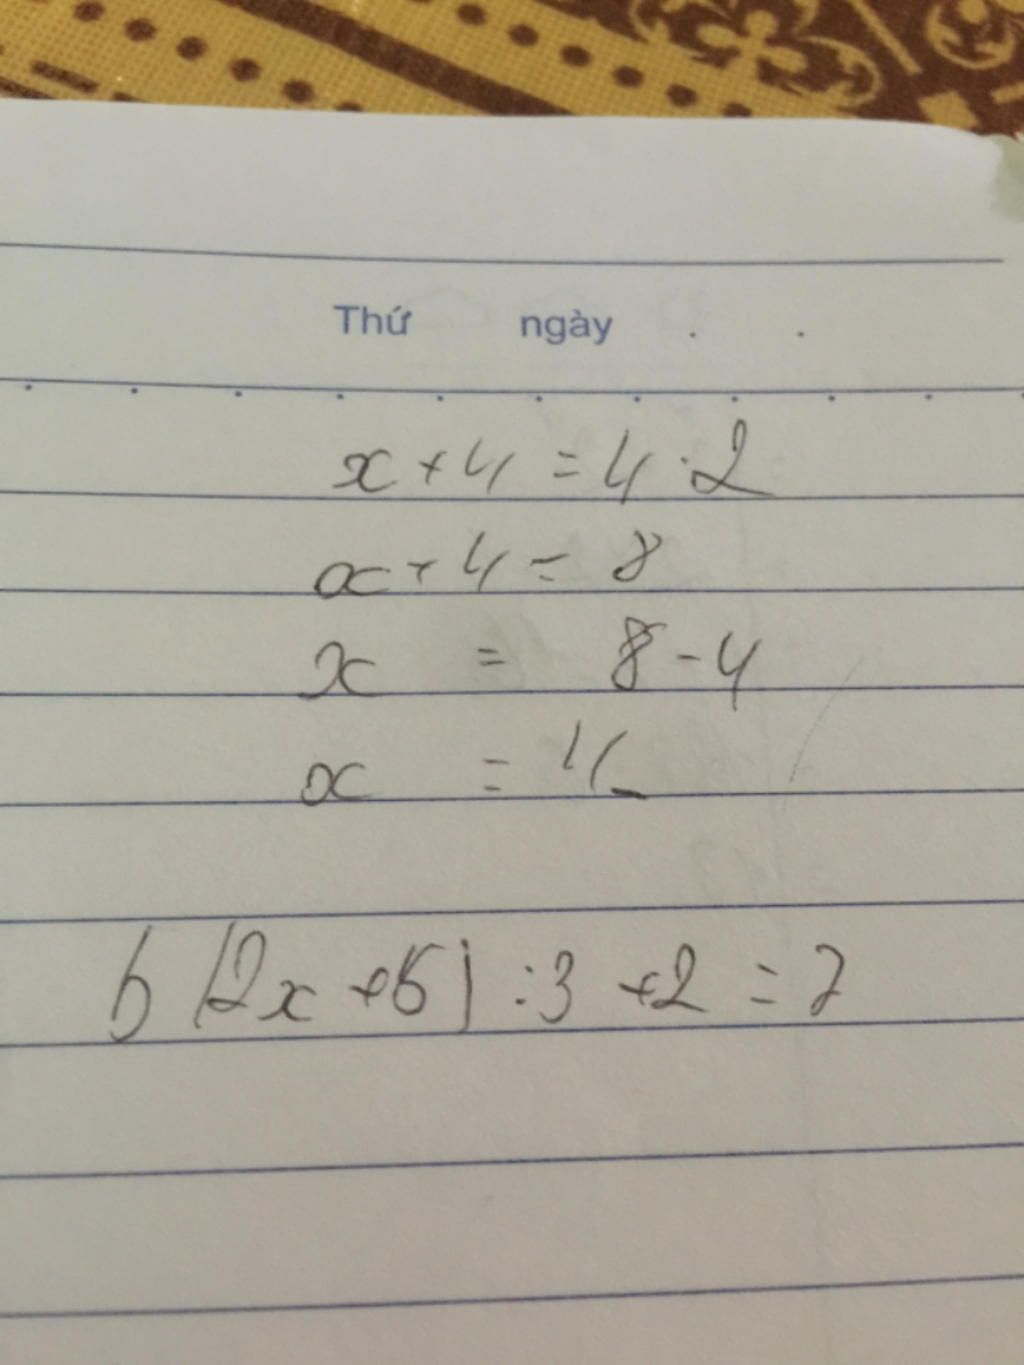 Thứ ngày
x + 4 = 4 . 2
x + 4 = 8
x = 8 - 4
x = 4
b (2x + 5) : 3 + 2 = 7